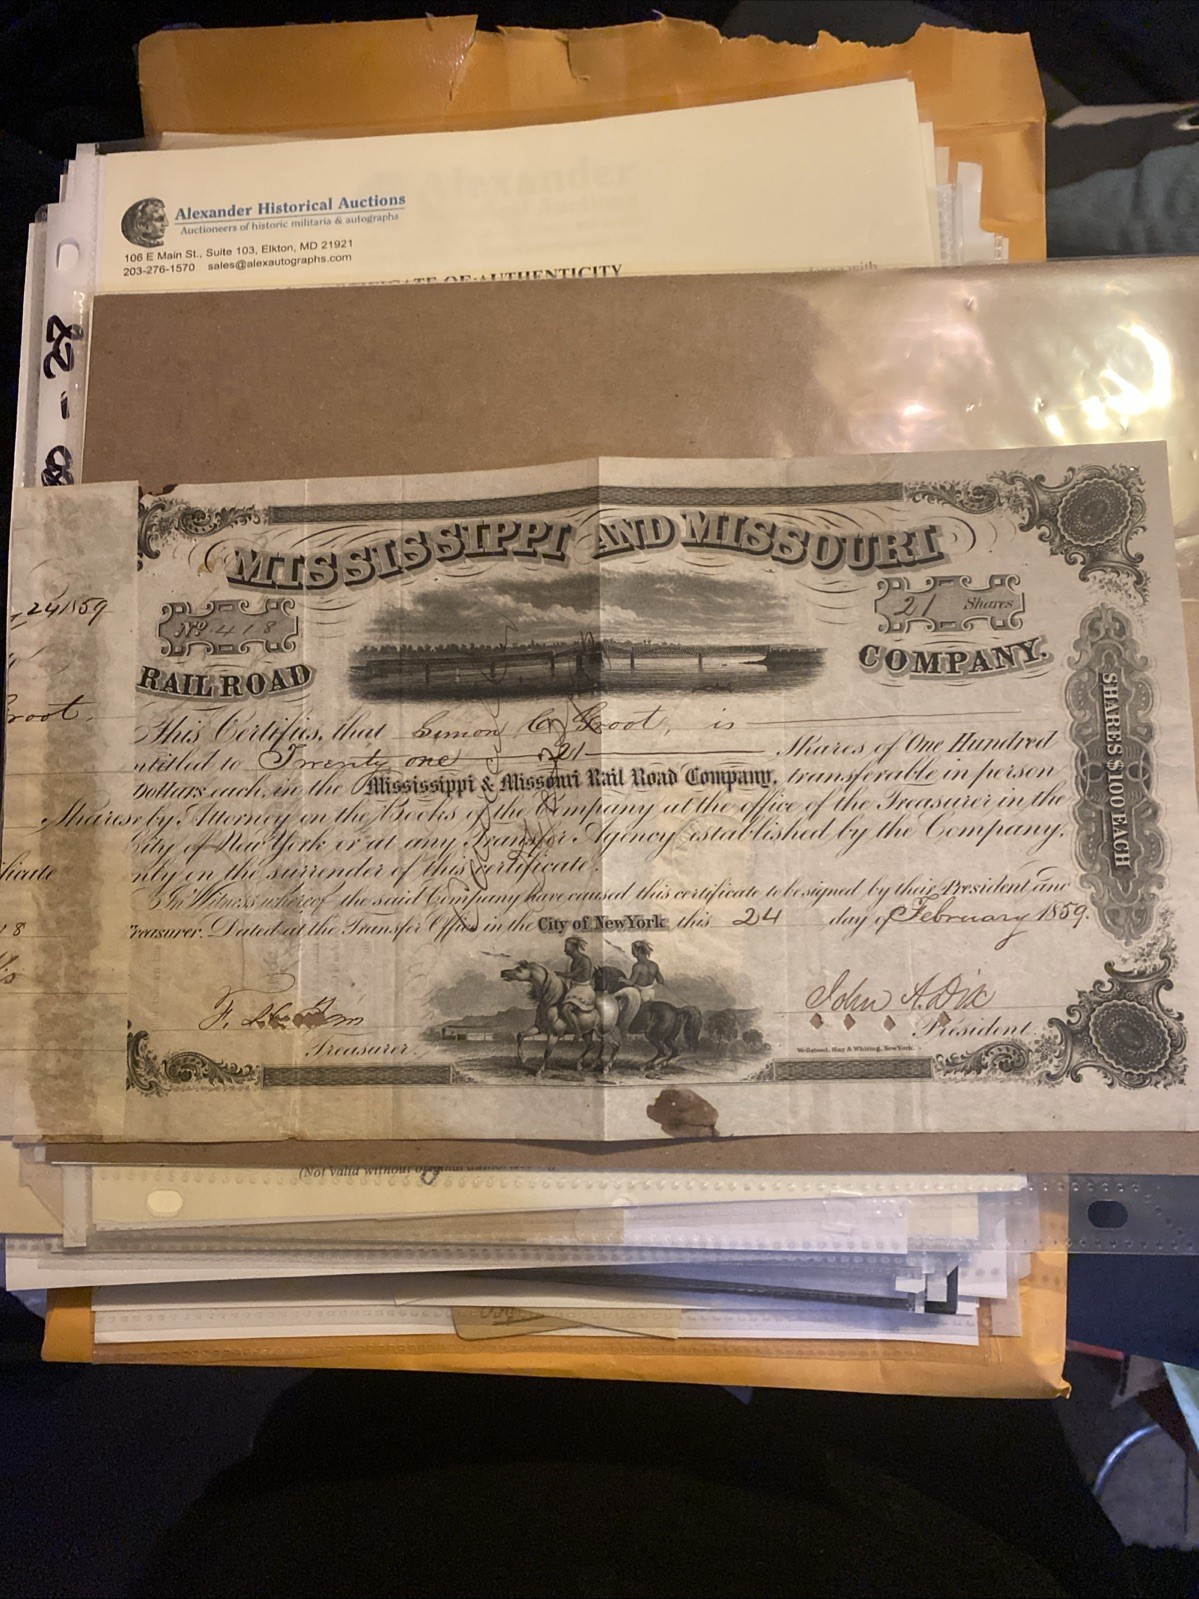 Alexander Historical Auctions
Auctioneers of historic militaria & autographs
106 E Main St., Suite 103, Elkton, MD 21921
203-276-1570 sales@alexautographs.com
CERTIFICATE OF AUTHENTICITY
- 28
MISSISSIPPI AND MISSOURI
24 1859
No. 418
21 Shares
RAIL ROAD
COMPANY.
root.
This Certifies, that Simon C Groot, is
ntitled to Twenty one 21 Shares of One Hundred
Dollars each, in the Mississippi & Missouri Rail Road Company, transferable in person
Shares
or by Attorney on the Books of the Company at the office of the Treasurer in the
City of New York or at any Transfer Agency established by the Company,
nly on the surrender of this certificate.
ificate
In Witness whereof the said Company have caused this certificate to be signed by their President and
Treasurer. Dated at the Transfer Office in the City of New York this 24 day of February 1859.
18
SHARES $100 EACH
F.
Treasurer.
John A. Dix
President.
Wellstood, Hay & Whiting, New York.
(Not valid without original